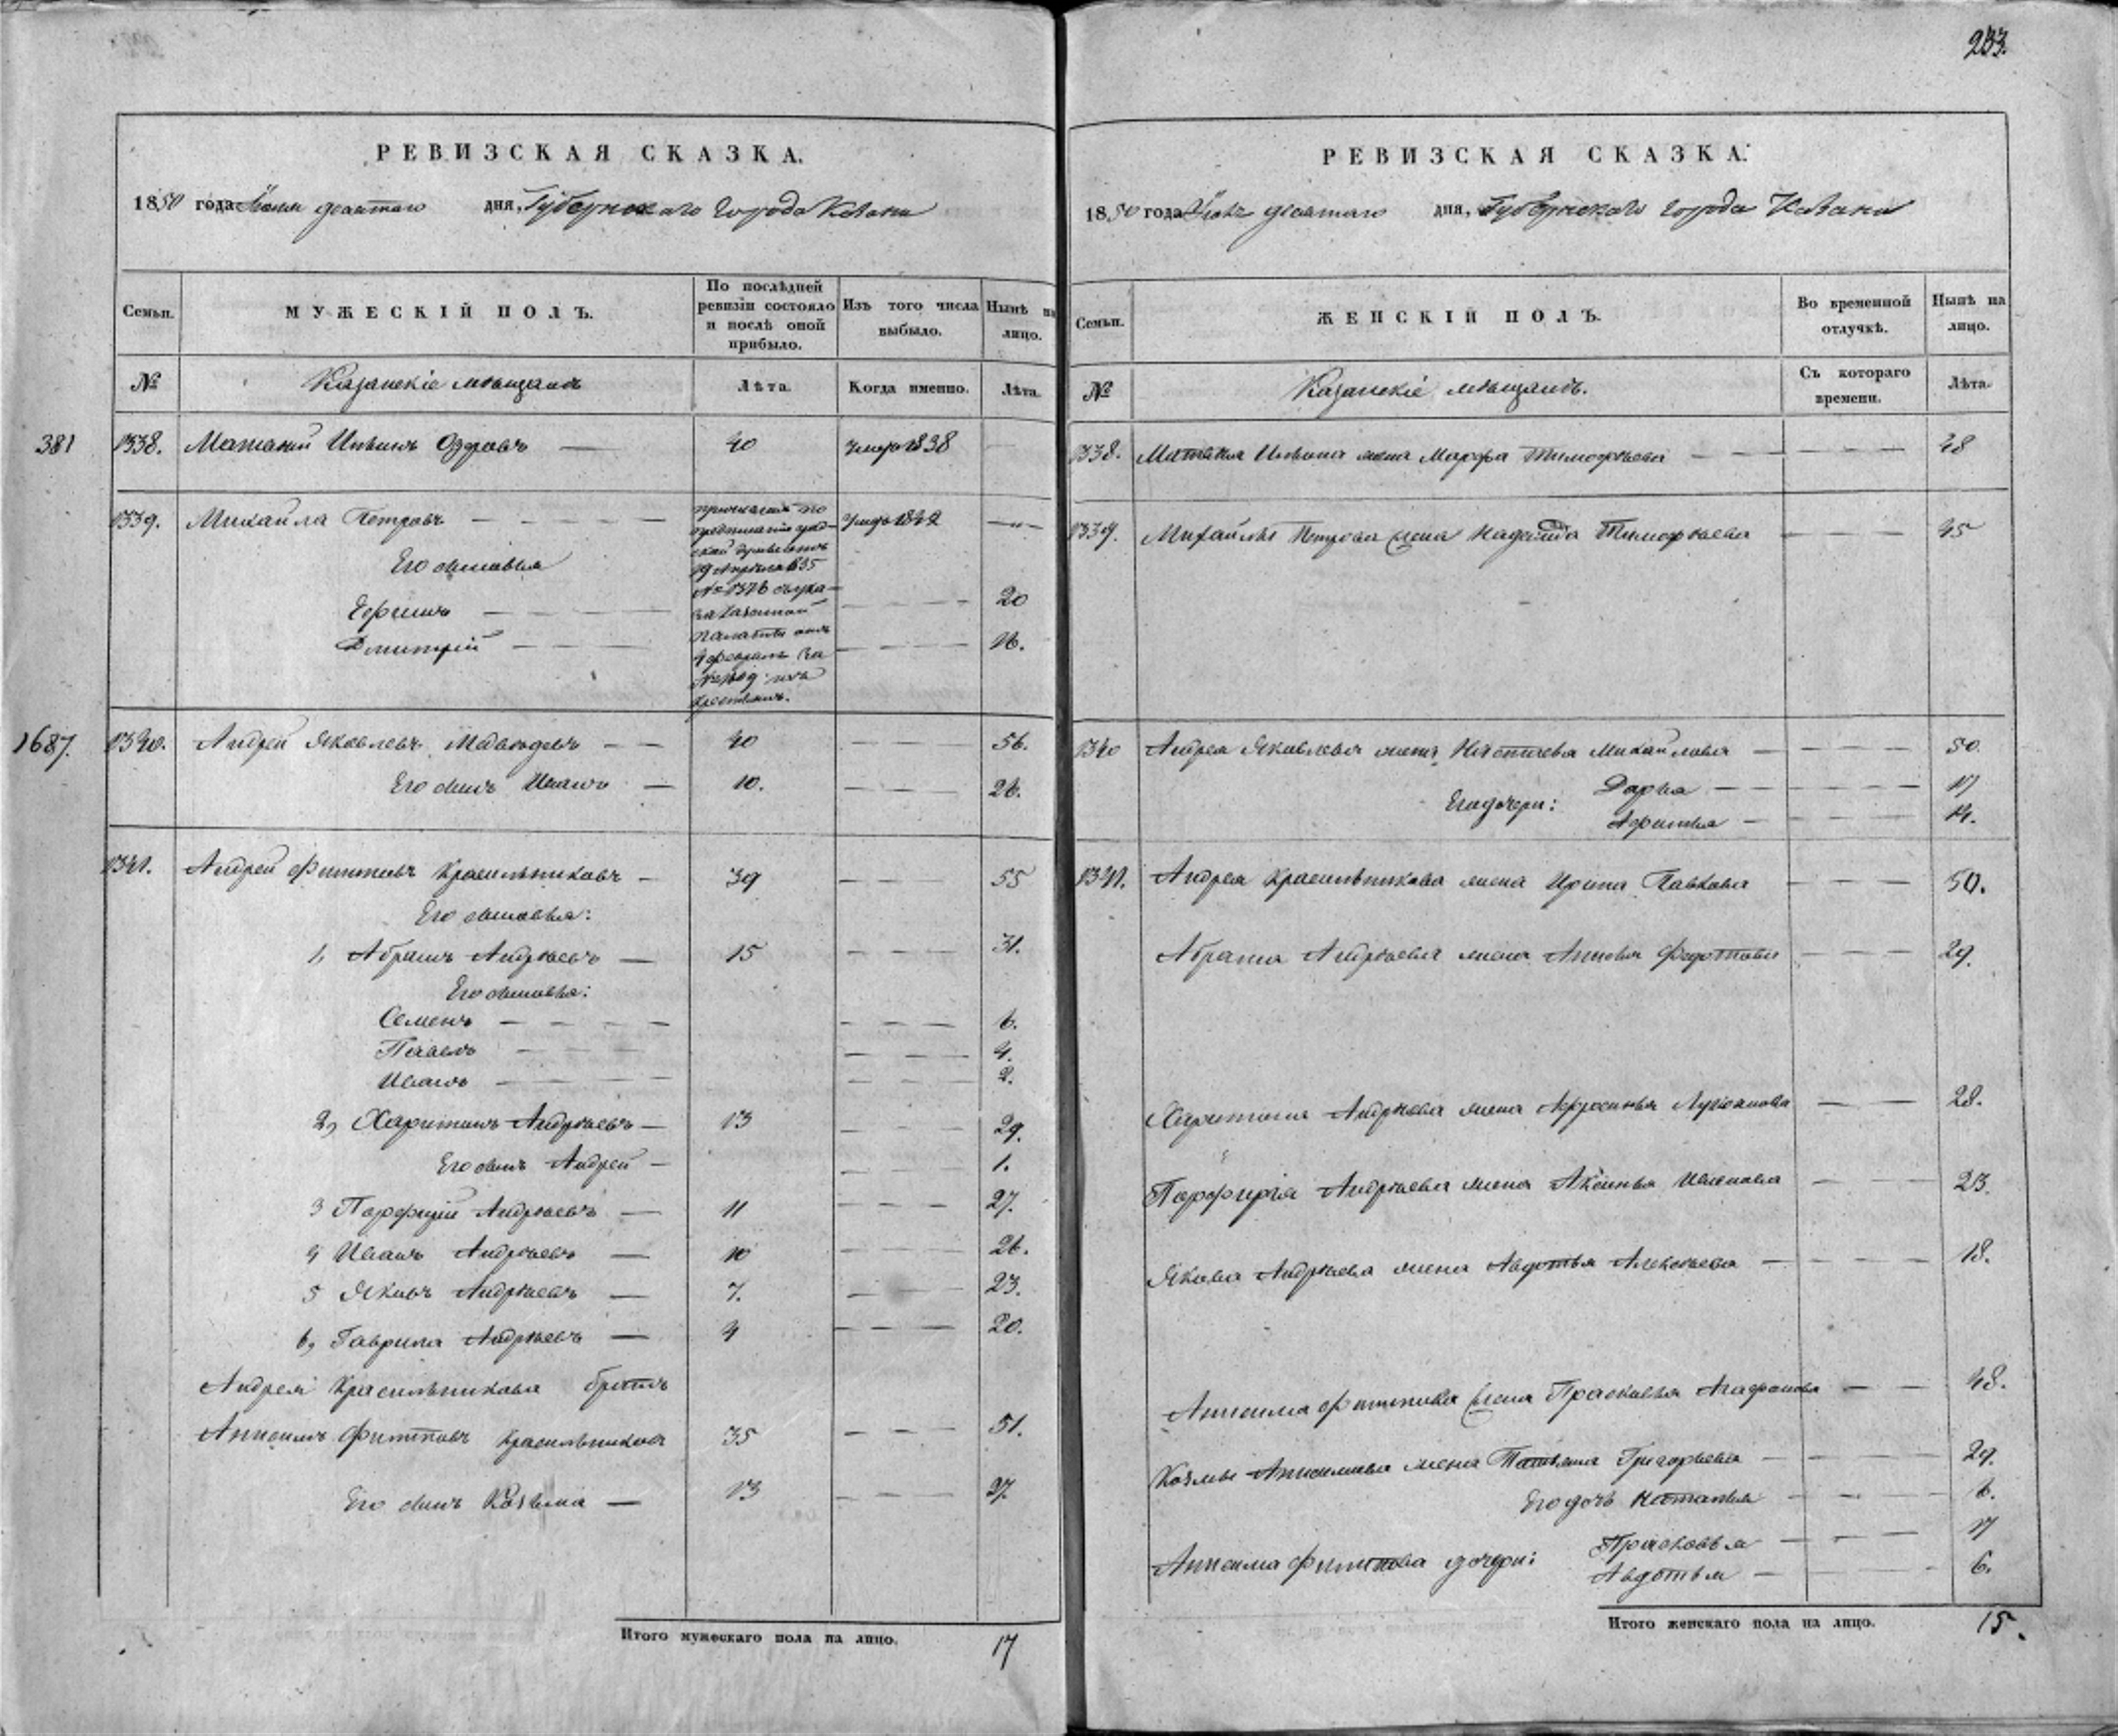 233.
РЕВИЗСКАЯ СКАЗКА.
1850 года Юня десятаго дня, Губернскаго Города Казани
Семьи. МУЖЕСКІЙ ПОЛЪ. По послѣдней ревизіи состояло и послѣ оной прибыло. Изъ того числа выбыло. Нынѣ на лицо.
№ Казанскіе мѣщане Лѣта. Когда именно. Лѣта.
381 1338. 40 умеръ 1838 —
1339. Михайла Петровъ — умеръ 1842 —"—
Его сыновья
Ефимъ — 20
Дмитрій — 16.
причисленъ по
предписанію
19 Апрѣля 1835
№ 1376
Казенной
палаты отъ
4 февраля за
№
1687. 1340. Андрей Яковлевъ — 40 — 56.
Его сынъ Иванъ — 10. — 26.
1341. Андрей Филиповъ Красильниковъ — 39 — 55
Его сыновья:
1, Абрамъ Андреевъ — 15 — 31.
Его сыновья:
Семенъ — 6.
Павелъ — 4.
Иванъ — 2.
2, Харитонъ Андреевъ — 13 — 29.
Его сынъ Андрей — 1.
3 Порфирій Андреевъ — 11 — 27.
4 Иванъ Андреевъ — 10 — 26.
5 Яковъ Андреевъ — 7. — 23.
6, Гаврила Андреевъ — 4 — 20.
Андрея Красильникова братъ
Анисимъ Филиповъ Красильниковъ 35 — 51.
Его сынъ Козьма — 13 — 27.
Итого мужескаго пола на лицо. 17
РЕВИЗСКАЯ СКАЗКА.
1850 года десятаго дня, Губернскаго Города Казани
Семьи. ЖЕНСКІЙ ПОЛЪ. Во временной отлучкѣ. Нынѣ на лицо.
№ Казанскіе мѣщане. Съ котораго времени. Лѣта.
1338. жена Марфа Тимофѣева — 48
1339. Михайлы Петрова жена Надежда Тимофѣева — 45
1340 Андрея Яковлева жена Михайлова — 50.
Его дочери: Дарья — 17
Афимья — 14.
1341. Андрея Красильникова жена Ирина Павлова — 50.
Абрама Андреева жена Федотова — 29.
Харитона Андреева жена Афросинья — 28.
Порфирія Андреева жена Аксинья Иванова — 23.
Якова Андреева жена Авдотья Алексѣева — 18.
Анисима Филипова жена Прасковья Агафонова — 48.
Козмы Анисимова жена Татьяна Григорьева — 29.
Его дочь Наталья — 6.
Анисима Филипова дочери: Прасковья — 17
Авдотья — 6.
Итого женскаго пола на лицо. 15.